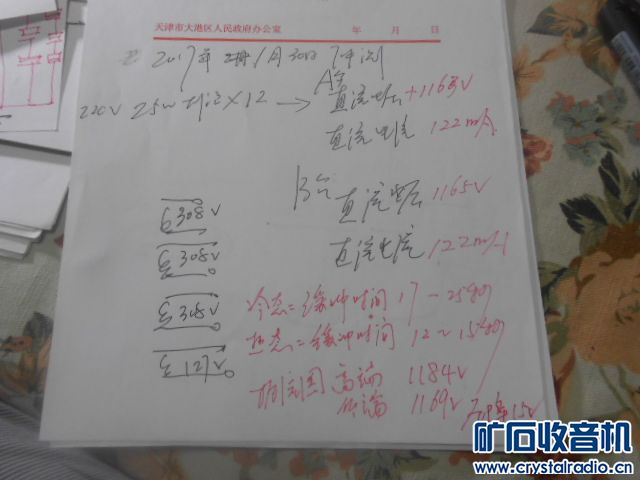 天津市大港区人民政府办公室 年 月 日
2017年 1月30日
A台
220V 25W ×12 → 直流电压 +1165V
直流电流 122mA
B台
直流电压 1165V
直流电流 122mA
308V
308V
308V
121V
冷态=缓冲时间 17-25秒
热态=缓冲时间 12~15秒
高端 1184V
低端 1169V
15V
矿石收音机
www.crystalradio.cn